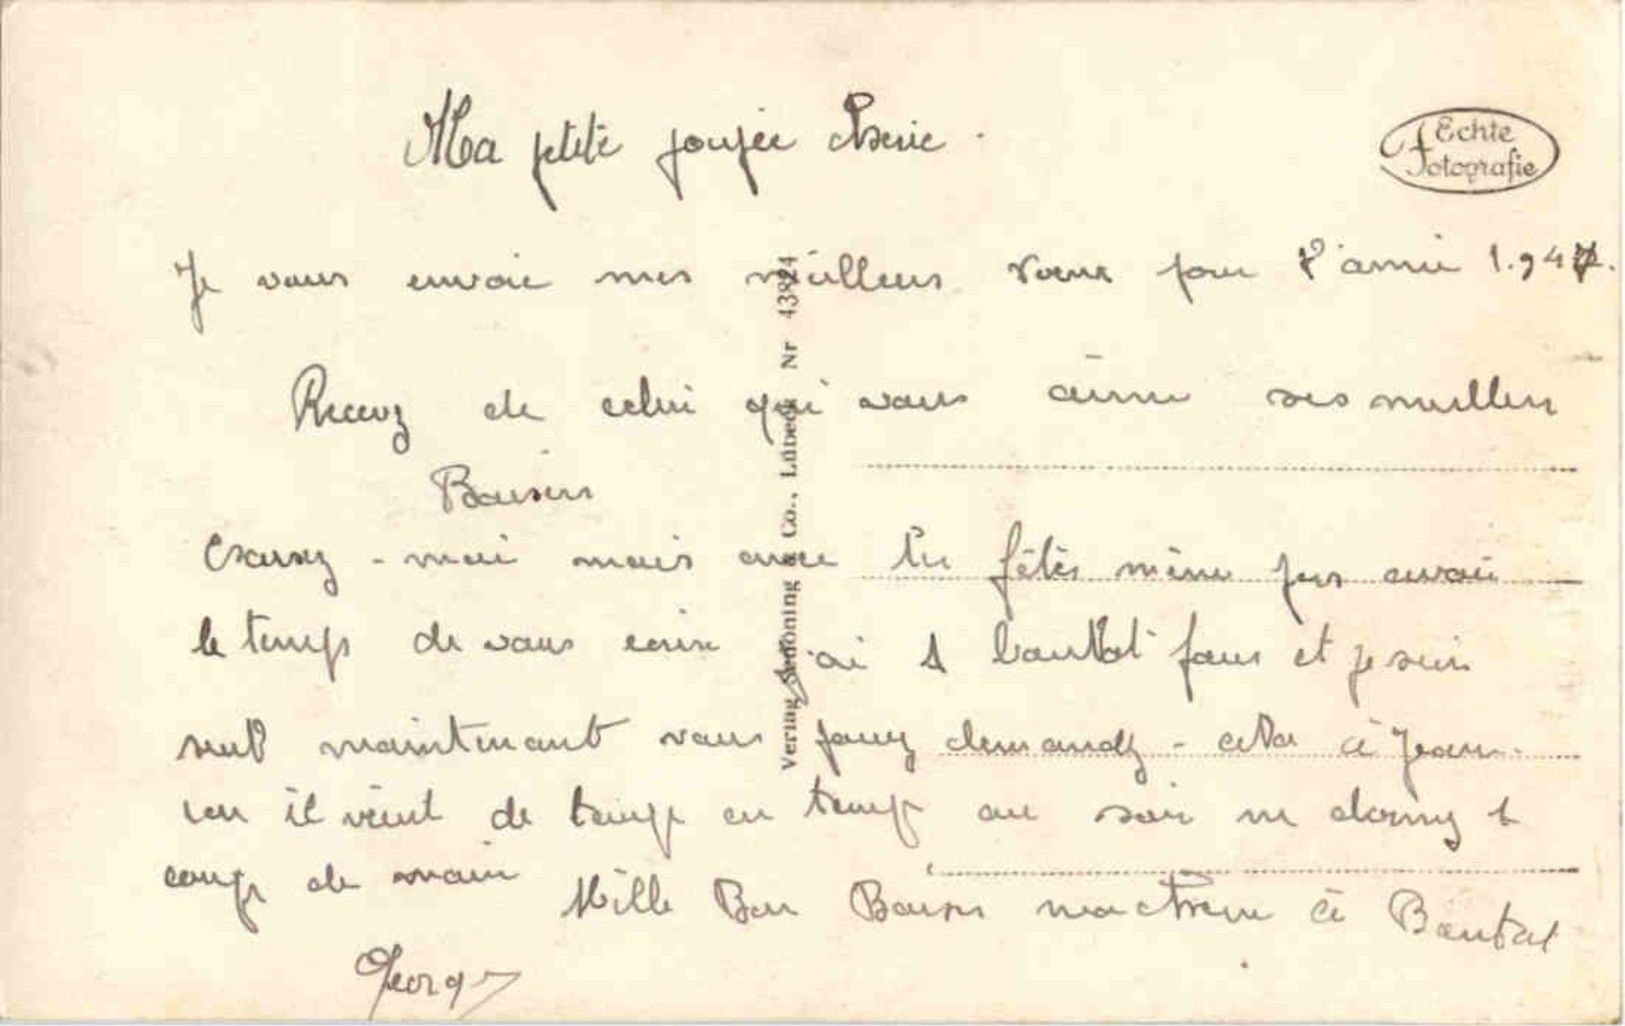 Ma ptite poupée cherie.
Echte
Fotografie
Je vous envoie mes meilleurs vœux pour l'année 1.947.
Recevez de celui qui vous aime ses meilleurs
Baisers
Excusez-moi mais avec les fêtes même pas avoir
le temps de vous écrire j'ai 1 boulot fous et je suis
seul maintenant vous pouvez demandez-cela à Jean.
il vient de temps en temps au soir me donnez 1
coup de main
Mille Bon Baisers ma cherie à Bientot
Georges
Verlag Schöning & Co., Lübeck Nr 43824